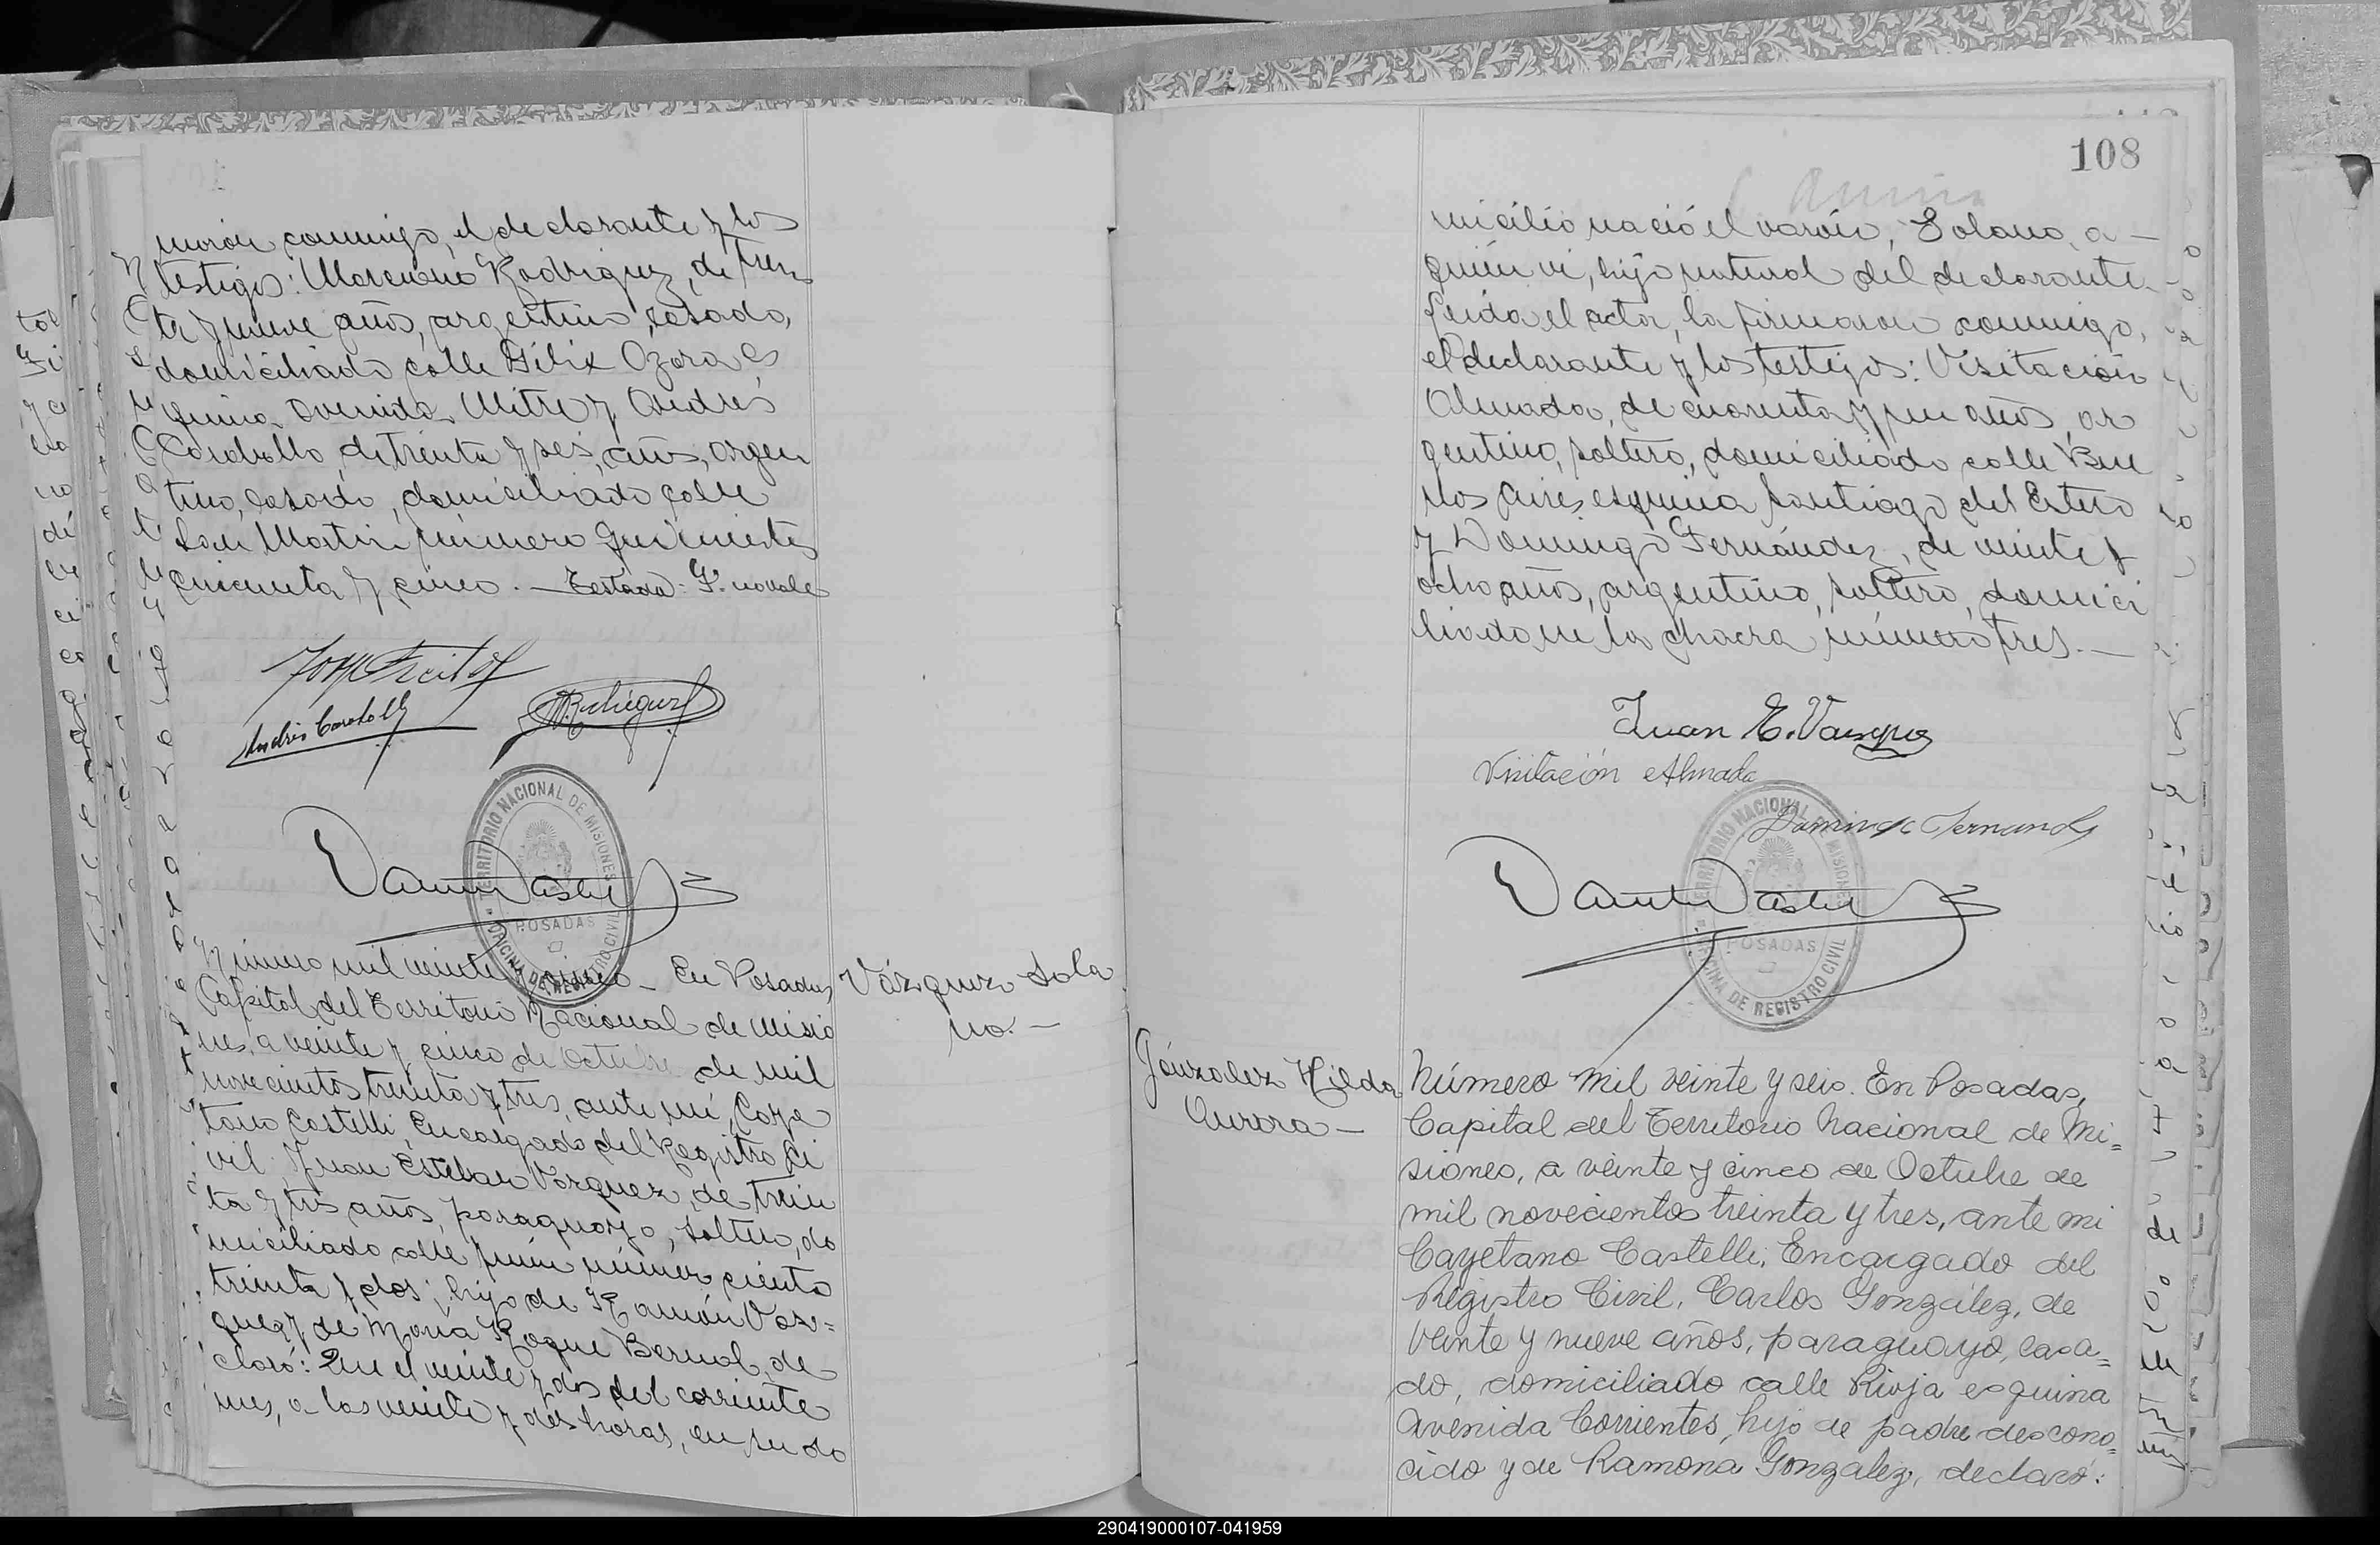 maron conmigo, el declarante y los
testigos: Marciano Rodriguez, de trein
ta y nueve años, argentino, casado,
domiciliado calle Félix Azara es
quina Avenida Mitre y Andrés
Caraballo, de treinta y seis años, argen
tino, casado, domiciliado calle
San Martin número quinientos
cincuenta y cinco. — Testado: G. no vale
Andrés Caraballo
TERRITORIO NACIONAL DE MISIONES
POSADAS
OFICINA DE REGISTRO CIVIL
Número mil veinte y cinco — En Posadas,
Capital del Territorio Nacional de Misio
nes, a veinte y cinco de Octubre de mil
novecientos treinta y tres, ante mí, Caye
tano Castelli, Encargado del Registro Ci
vil, Juan Esteban Vázquez, de trein
ta y tres años, paraguayo, soltero, do
miciliado calle Junín número ciento
treinta y dos; hijo de Ramón Vaz=
quez y de María Roque Bernal, de
claró: Que el veinte y dos del corriente
mes, a las veinte y dos horas, en su do
Vázquez Sola
no. —
108
micilio nació el varón, Solano, a —
quien vi, hijo natural del declarante.
Leída el acta, la firmaron conmigo,
el declarante y los testigos: Visitación
Almada, de cuarenta y un años, ar
gentino, soltero, domiciliado calle Bue
nos Aires esquina Santiago del Estero
y Domingo Fernández, de veinte y
ocho años, argentino, soltero, domici
liado en la chacra número tres. —
Juan E. Vasquez
Visitación Almada
Domingo Fernandez
TERRITORIO NACIONAL DE MISIONES
POSADAS
OFICINA DE REGISTRO CIVIL
Gónzalez Hilda
Aurora —
Número mil veinte y seis. En Posadas,
Capital del Territorio Nacional de Mi=
siones, a veinte y cinco de Octubre de
mil novecientos treinta y tres, ante mi
Cayetano Castelli, Encargado del
Registro Civil, Carlos González, de
veinte y nueve años, paraguayo, casa=
do, domiciliado calle Rioja esquina
Avenida Corrientes, hijo de padre descono=
cido y de Ramona González, declaró:
290419000107-041959